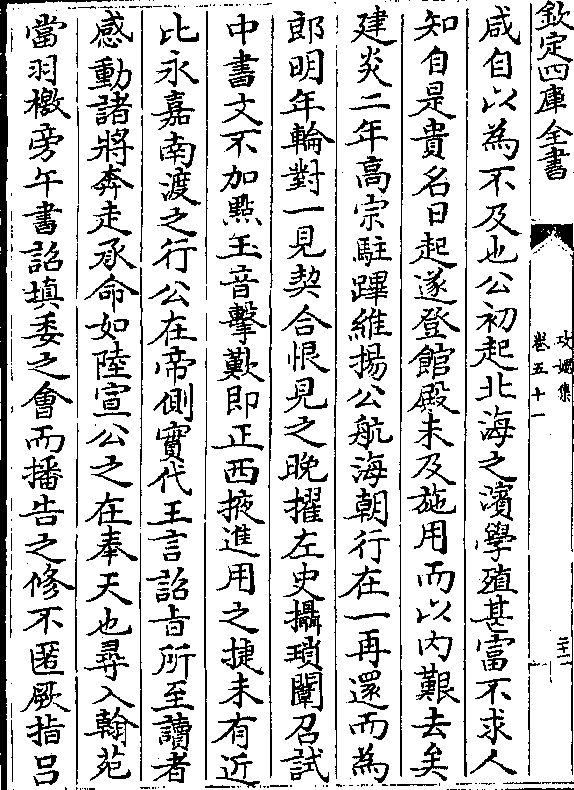 欽定四庫全書
攻媿集
卷五十一
咸自以為不及也公初起北海之濵學殖甚富不求人
知自是貴名日起遂登館殿未及施用而以内艱去矣
建炎二年高宗駐蹕維揚公航海朝行在一再還而為
郎明年輪對一見契合恨見之晚擢左史攝瑣闥召試
中書文不加㸃玉音擊歎即正西掖進用之捷未有近
比永嘉南渡之行公在帝側實代王言詔㫖所至讀者
感動諸將奔走承命如陸宣公之在奉天也尋入翰苑
當羽檄旁午書詔填委之會而播告之修不匿厥指吕